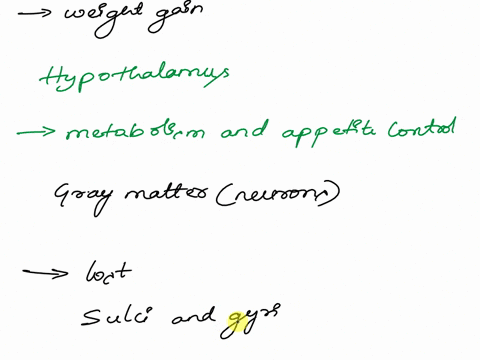 → weight gain
Hypothalamus
→ metabolism and appetite control
Gray matter (neurons)
→ lost
Sulci and gyri